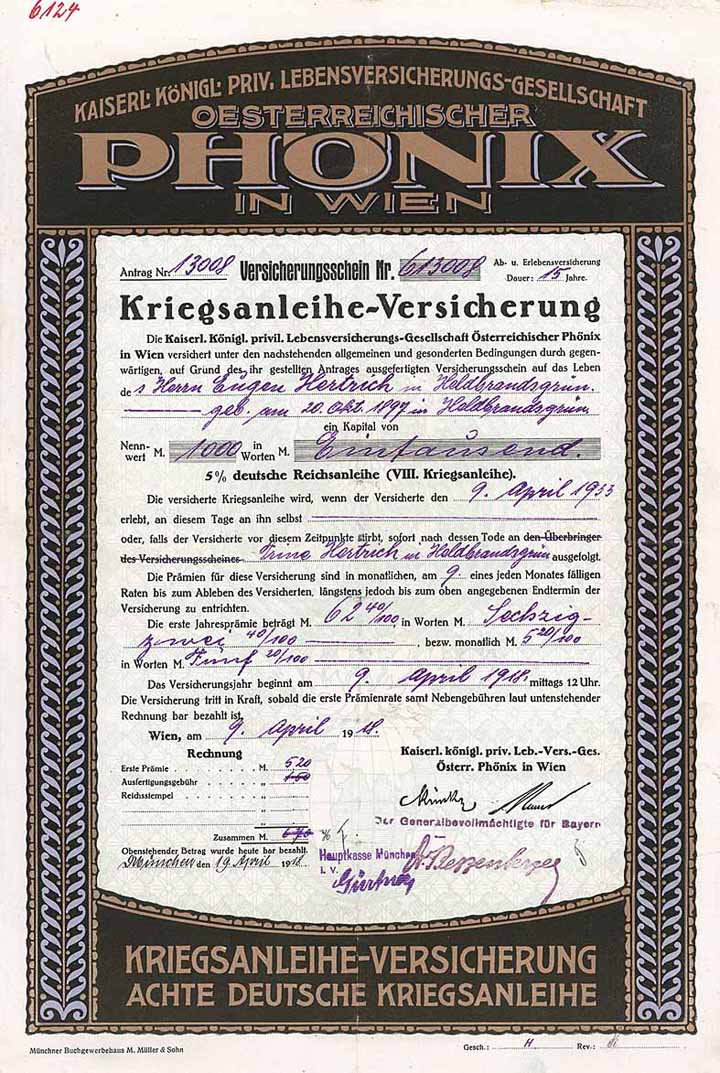 6124
KAISERL. KÖNIGL. PRIV. LEBENSVERSICHERUNGS-GESELLSCHAFT
OESTERREICHISCHER
PHÖNIX
IN WIEN
Antrag Nr. 13008 Versicherungsschein Nr. 613008 Ab- u. Erlebensversicherung
Dauer: 15 Jahre.
Kriegsanleihe-Versicherung
Die Kaiserl. Königl. privil. Lebensversicherungs-Gesellschaft Österreichischer Phönix
in Wien versichert unter den nachstehenden allgemeinen und gesonderten Bedingungen durch gegen-
wärtigen, auf Grund des ihr gestellten Antrages ausgefertigten Versicherungsschein auf das Leben
des Herrn Eugen Hertrich in Heldbrandsgrün.
geb. am 20. Okt. 1897 in Heldbrandsgrün
ein Kapital von
Nenn-wert M. 1000 in Worten M. Eintausend.
5% deutsche Reichsanleihe (VIII. Kriegsanleihe).
Die versicherte Kriegsanleihe wird, wenn der Versicherte den 9. April 1933
erlebt, an diesem Tage an ihn selbst
oder, falls der Versicherte vor diesem Zeitpunkte stirbt, sofort nach dessen Tode an den Überbringer
des Versicherungsscheines Hertrich in Heldbrandsgrün ausgefolgt.
Die Prämien für diese Versicherung sind in monatlichen, am 9. eines jeden Monates fälligen
Raten bis zum Ableben des Versicherten, längstens jedoch bis zum oben angegebenen Endtermin der
Versicherung zu entrichten.
Die erste Jahresprämie beträgt M. 62 40/100 in Worten M. Sechzig-
zwei 40/100, bezw. monatlich M. 5 20/100
in Worten M. Fünf 20/100
Das Versicherungsjahr beginnt am 9. April 1918. mittags 12 Uhr.
Die Versicherung tritt in Kraft, sobald die erste Prämienrate samt Nebengebühren laut untenstehender
Rechnung bar bezahlt ist.
Wien, am 9. April 1918.
Rechnung
Erste Prämie M. 5.20
Ausfertigungsgebühr " 1.50
Reichsstempel "
Zusammen M. 6.70
Obenstehender Betrag wurde heute bar bezahlt.
München den 19 April 1918.
Kaiserl. königl. priv. Leb.-Vers.-Ges.
Österr. Phönix in Wien
Der Generalbevollmächtigte für Bayern
Hauptkasse München
i. V.
KRIEGSANLEIHE-VERSICHERUNG
ACHTE DEUTSCHE KRIEGSANLEIHE
Münchner Buchgewerbehaus M. Müller & Sohn
Gesch.: H Rev.: